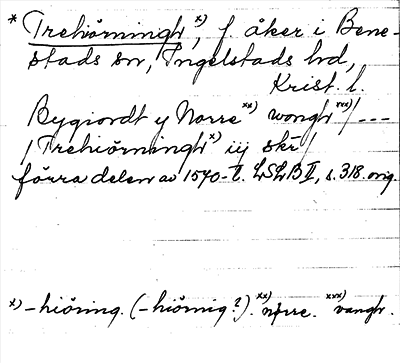 * Trehiörninghr x), f. åker i Bene-
stads sn, Ingelstads hd,
Krist. l.
Bygiordt y Norre xx) wongh xxx) / ---
/ Trehiörningh x) iij skr /
förra delen av 1540-t. LSLB II, s. 318. orig.
x) -hiöring. (-hiörnig?). xx) nörre. xxx) vangh.